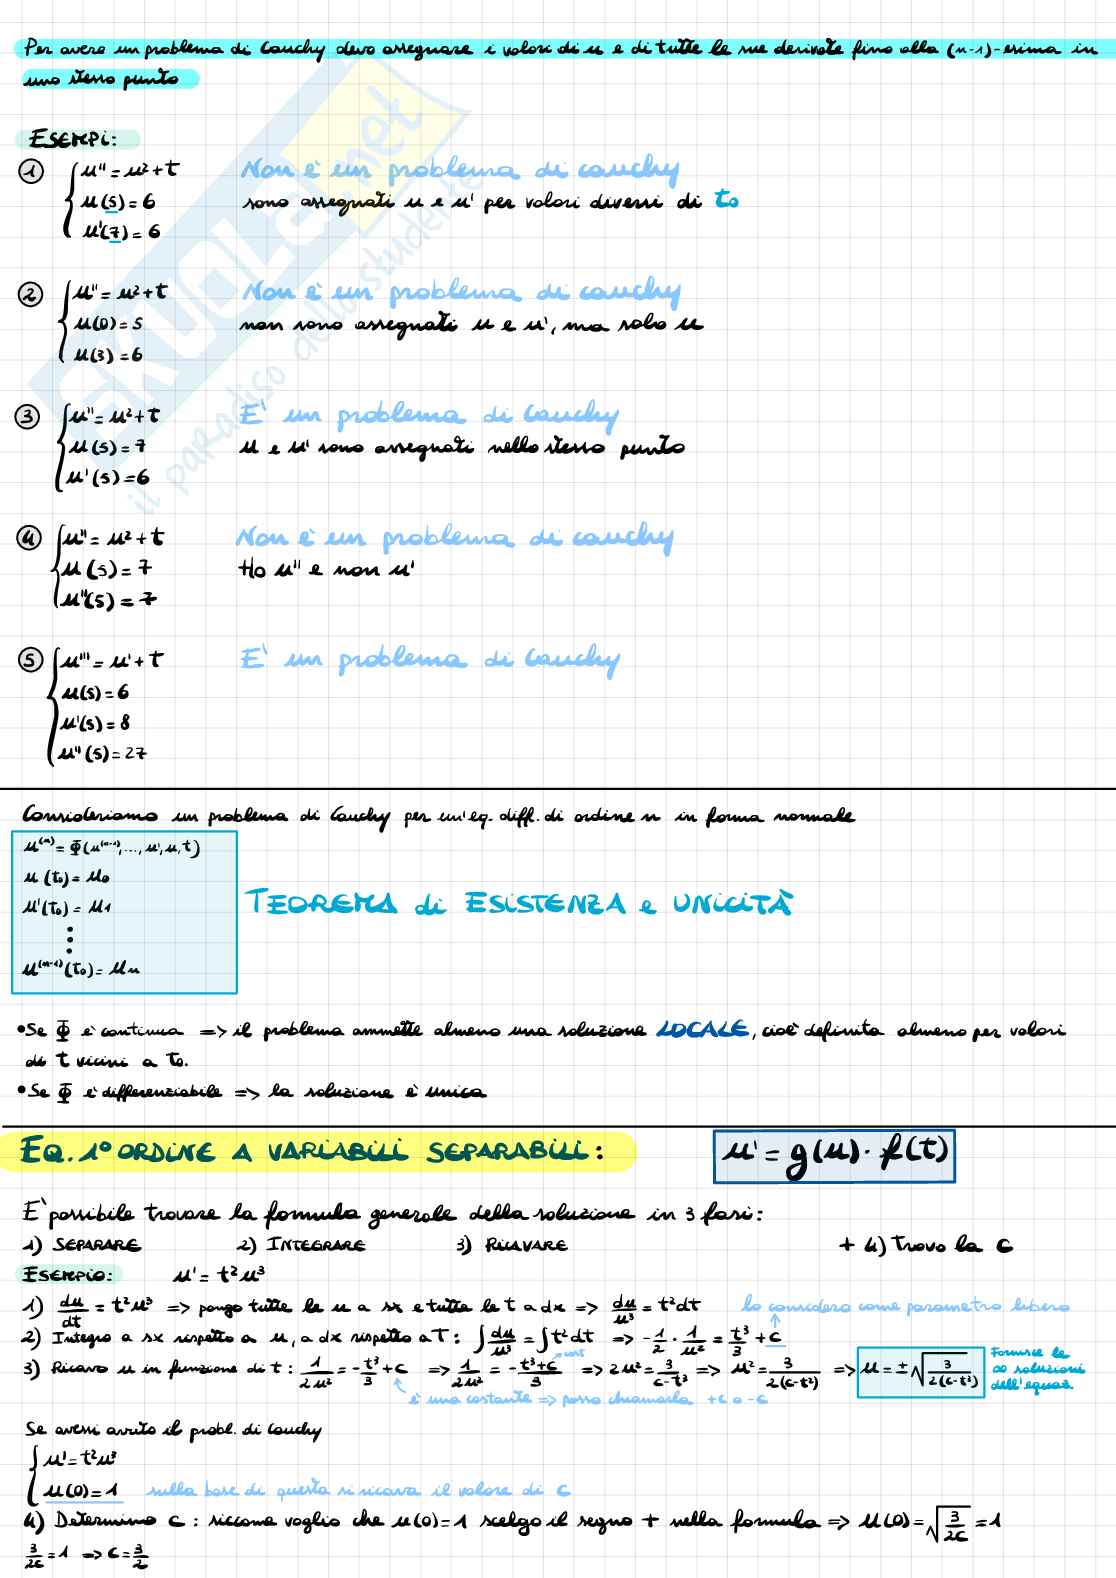 Per avere un problema di Cauchy devo assegnare i valori di u e di tutte le sue derivate fino alla (n-1)-esima in
uno stesso punto
ESEMPI:
① { u'' = u² + t Non è un problema di cauchy
u(5) = 6 sono assegnati u e u' per valori diversi di t₀
u'(7) = 6
② { u'' = u² + t Non è un problema di cauchy
u(0) = 5 non sono assegnati u e u', ma solo u
u(3) = 6
③ { u'' = u² + t E' un problema di Cauchy
u(5) = 7 u e u' sono assegnati nello stesso punto
u'(5) = 6
④ { u'' = u² + t Non è un problema di cauchy
u(5) = 7 Ho u'' e non u'
u''(5) = 7
⑤ { u''' = u' + t E' un problema di Cauchy
u(5) = 6
u'(5) = 8
u''(5) = 27
SKUOLA.net
il paradiso dello studente
Consideriamo un problema di Cauchy per un'eq. diff. di ordine n in forma normale
u⁽ⁿ⁾ = Φ(u⁽ⁿ⁻¹⁾, ..., u', u, t)
u(t₀) = u₀
u'(t₀) = u₁
⋮
u⁽ⁿ⁻¹⁾(t₀) = uₙ
TEOREMA di ESISTENZA e UNICITÀ
• Se Φ è continua => il problema ammette almeno una soluzione LOCALE, cioè definita almeno per valori
di t vicini a t₀.
• Se Φ è differenziabile => la soluzione è unica
EQ. 1° ORDINE A VARIABILI SEPARABILI: u' = g(u) · f(t)
E' possibile trovare la formula generale della soluzione in 3 fasi:
1) SEPARARE 2) INTEGRARE 3) RICAVARE + 4) Trovo la C
ESEMPIO: u' = t²u³
1) du/dt = t²u³ => pongo tutte le u a sx e tutte le t a dx => du/u³ = t²dt lo considero come parametro libero
2) Integro a sx rispetto a u, a dx rispetto a T: ∫du/u³ = ∫t²dt => -1/2 · 1/u² = t³/3 + c
3) Ricavo u in funzione di t: 1/2u² = -t³/3 + c => 1/2u² = -t³+c/3 => 2u² = 3/c-t³ => u² = 3/2(c-t²) => u = ±√3/2(c-t³) Fornisce le
cost
∞ soluzioni
dell'equaz.
è una costante => posso chiamarla +c o -c
Se avessi avuto il probl. di Cauchy
{ u' = t²u³
u(0) = 1 sulla base di questa si ricava il valore di c
4) Determino c: siccome voglio che u(0) = 1 scelgo il segno + nella formula => u(0) = √3/2c = 1
3/2c = 1 => c = 3/2